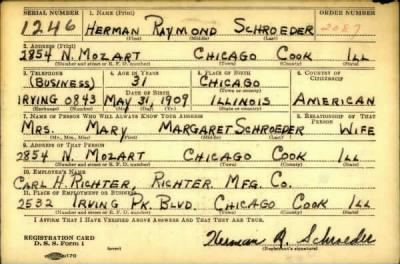 SERIAL NUMBER 1. NAME (Print) ORDER NUMBER
1246 HERMAN RAYMOND SCHROEDER 2087
(First) (Middle) (Last)
2. ADDRESS (Print)
2854 N. MOZART CHICAGO COOK ILL
(Number and street or R. F. D. number) (Town) (County) (State)
3. TELEPHONE 4. AGE IN YEARS 5. PLACE OF BIRTH 6. COUNTRY OF CITIZENSHIP
(BUSINESS) 31 CHICAGO
DATE OF BIRTH (Town or county)
IRVING 0843 MAY 31, 1909 ILLINOIS AMERICAN
(Exchange) (Number) (Mo.) (Day) (Yr.) (State or country)
7. NAME OF PERSON WHO WILL ALWAYS KNOW YOUR ADDRESS 8. RELATIONSHIP OF THAT PERSON
MRS. MARY MARGARET SCHROEDER WIFE
(Mr., Mrs., Miss) (First) (Middle) (Last)
9. ADDRESS OF THAT PERSON
2854 N. MOZART CHICAGO COOK ILL
(Number and street or R. F. D. number) (Town) (County) (State)
10. EMPLOYER'S NAME
CARL H. RICHTER, RICHTER MFG. CO.
11. PLACE OF EMPLOYMENT OR BUSINESS
2532 IRVING PK. BLVD. CHICAGO COOK ILL
(Number and street or R. F. D. number) (Town) (County) (State)
I AFFIRM THAT I HAVE VERIFIED ABOVE ANSWERS AND THAT THEY ARE TRUE.
REGISTRATION CARD
D. S. S. Form 1 (over) Herman R. Schroeder
(Registrant's signature)